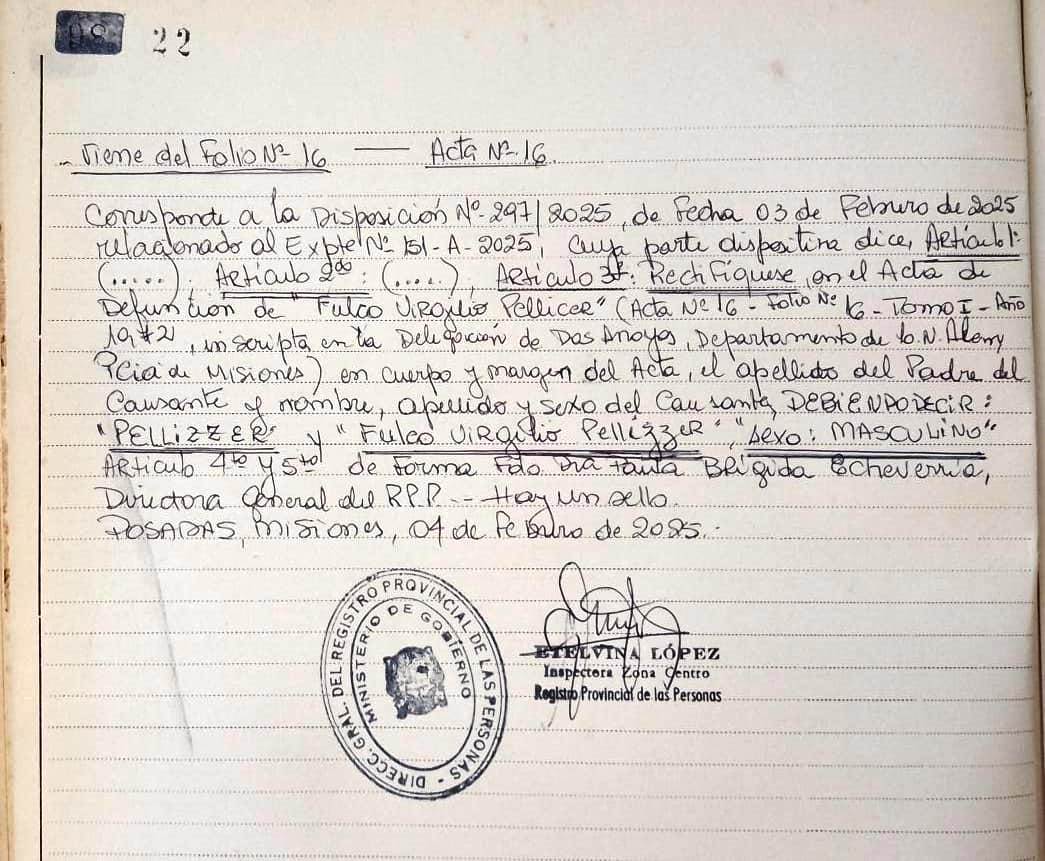 22
Viene del Folio Nº 16 — Acta Nº 16.
Corresponde a la Disposición Nº 297/2025, de Fecha 03 de Febrero de 2025
relacionado al Expte Nº 151-A-2025, cuya parte dispositiva dice, Artículo 1º:
(.....). Artículo 2do: (.....), Artículo 3º: Rectifíquese, en el Acta de
Defunción de "Fulco Virgilio Pellicer" (Acta Nº 16 - Folio Nº 16 - Tomo I - Año
1972, inscripta en la Delegación de Dos Arroyos, Departamento de L.N. Alem
Pcia de Misiones) en cuerpo y margen del Acta, el apellido del Padre del
Causante y nombre, apellido y sexo del Causante, DEBIENDO DECIR:
"PELLIZZER" y "FULCO VIRGILIO PELLIZZER", "sexo: MASCULINO"
Artículo 4to y 5to de Forma Fdo Dra Paula Brígida Echeverría,
Directora General del R.P.P. -- Hay un sello.
POSADAS, Misiones, 04 de Febrero de 2025.
DIRECC. GRAL. DEL REGISTRO PROVINCIAL DE LAS PERSONAS -
MINISTERIO DE GOBIERNO
ETELVINA LÓPEZ
Inspectora Zona Centro
Registro Provincial de las Personas